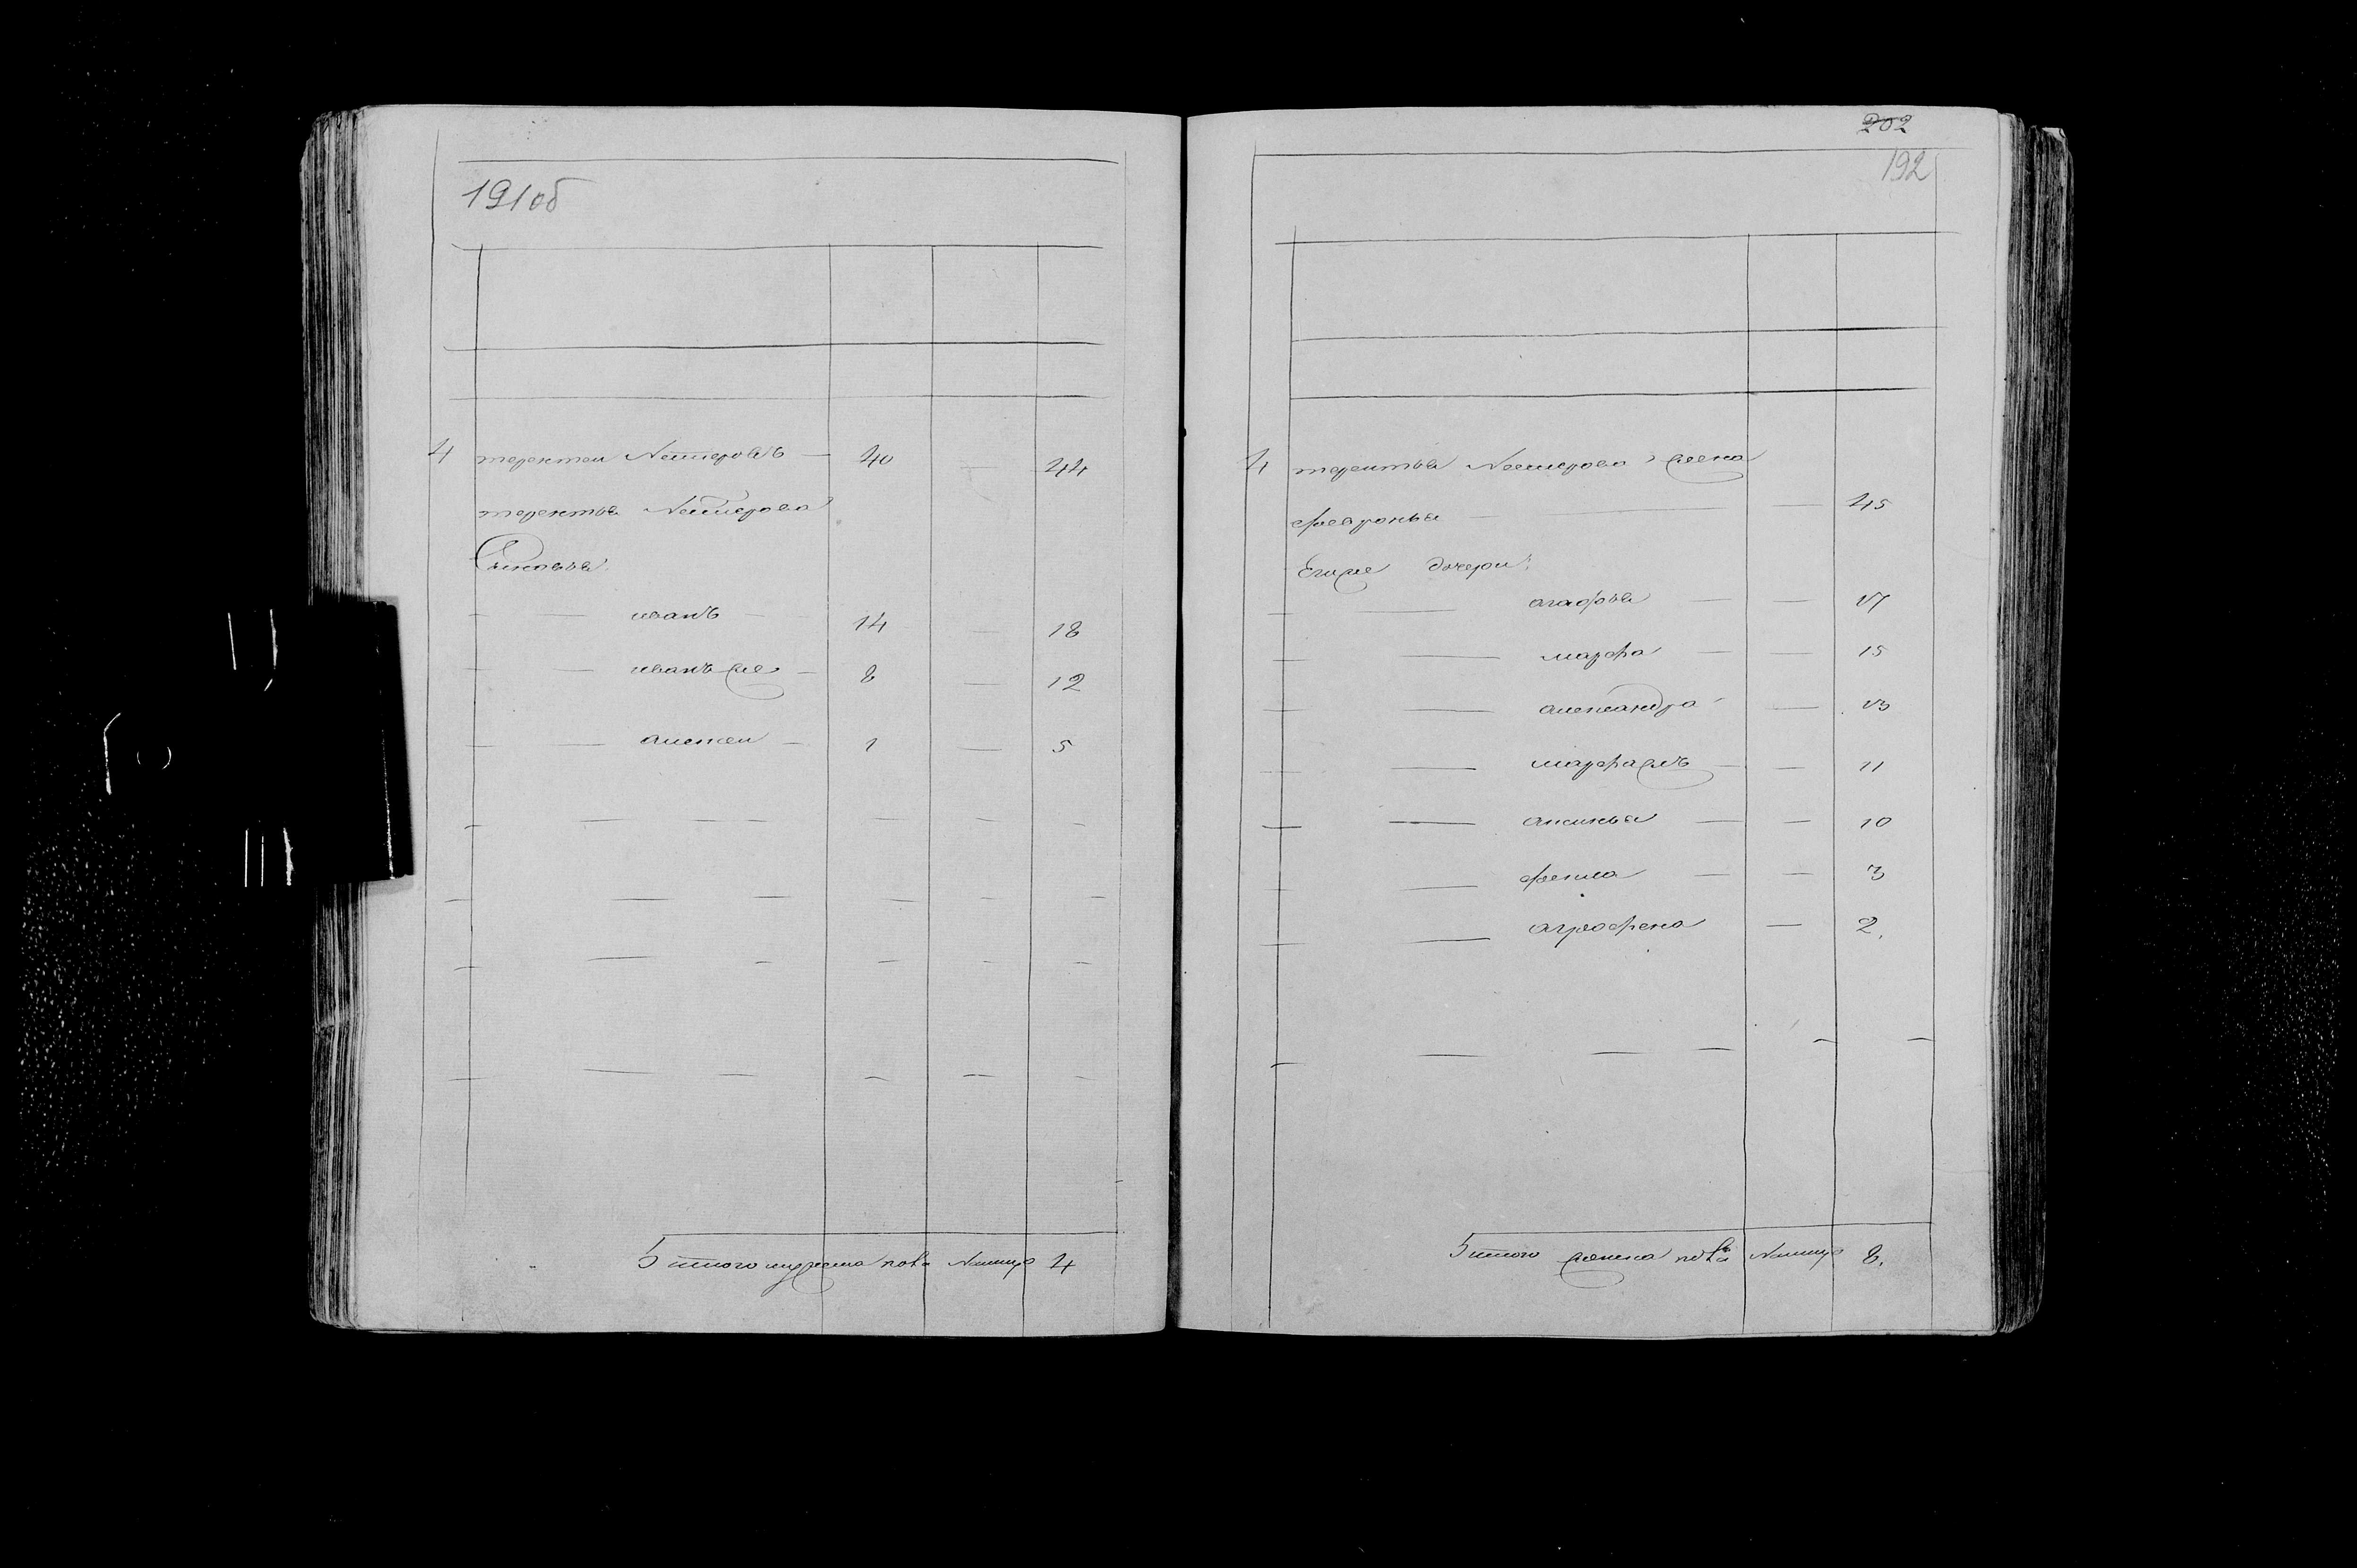 191об
4 терентеи Нестеровъ — 40 — 44
терентья Нестерова
Сыновья:
иванъ — 14 — 18
иванъ же — 8 — 12
алексеи — 1 — 5
Итого мужеска пола Налицо 4
202
192
4 терентья Нестерова жена
февронья — 45
Егоже дочери:
агафья — 17
марфа — 15
александра — 13
марфа жъ — 11
аксинья — 10
фекла — 3
аграфена — 2.
Итого женска пола Налицо 8.